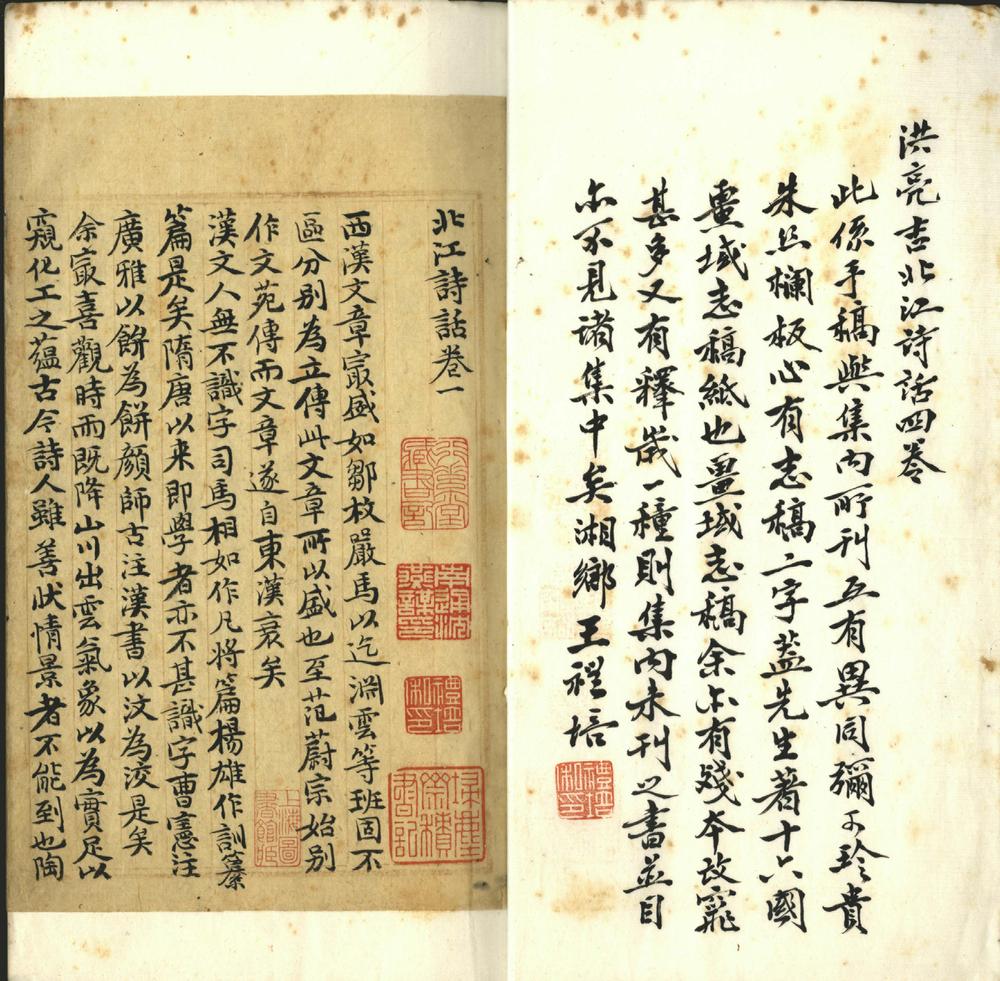 洪亮吉北江詩話四卷
此係手稿與集內所刊互有異同彌可珍貴
朱丝欄板心有志稿二字蓋先生著十六國
畺域志稿紙也畺域志稿余亦有殘本改竄
甚多又有釋歲一種則集內未刊之書並目
亦不見諸集中矣湘鄉王禮培
禮培私印
北江詩話卷一
南通沈燕謀印
禮培私印
埽塵齋積書記
西漢文章㝡盛如鄒枚嚴馬以迄淵雲等班固不
區分別為立傳此文章所以盛也至范蔚宗始別
作文苑傳而文章遂自東漢衰矣
漢文人無不識字司馬相如作凡將篇楊雄作訓纂
篇是矣隋唐以来即學者亦不甚識字曹憲注
廣雅以餅為餅顏師古注漢書以汶為洨是矣
余㝡喜觀時雨既降山川出雲氣象以為實足以
窺化工之蘊古今詩人雖善狀情景者不能到也陶
上海圖書館藏